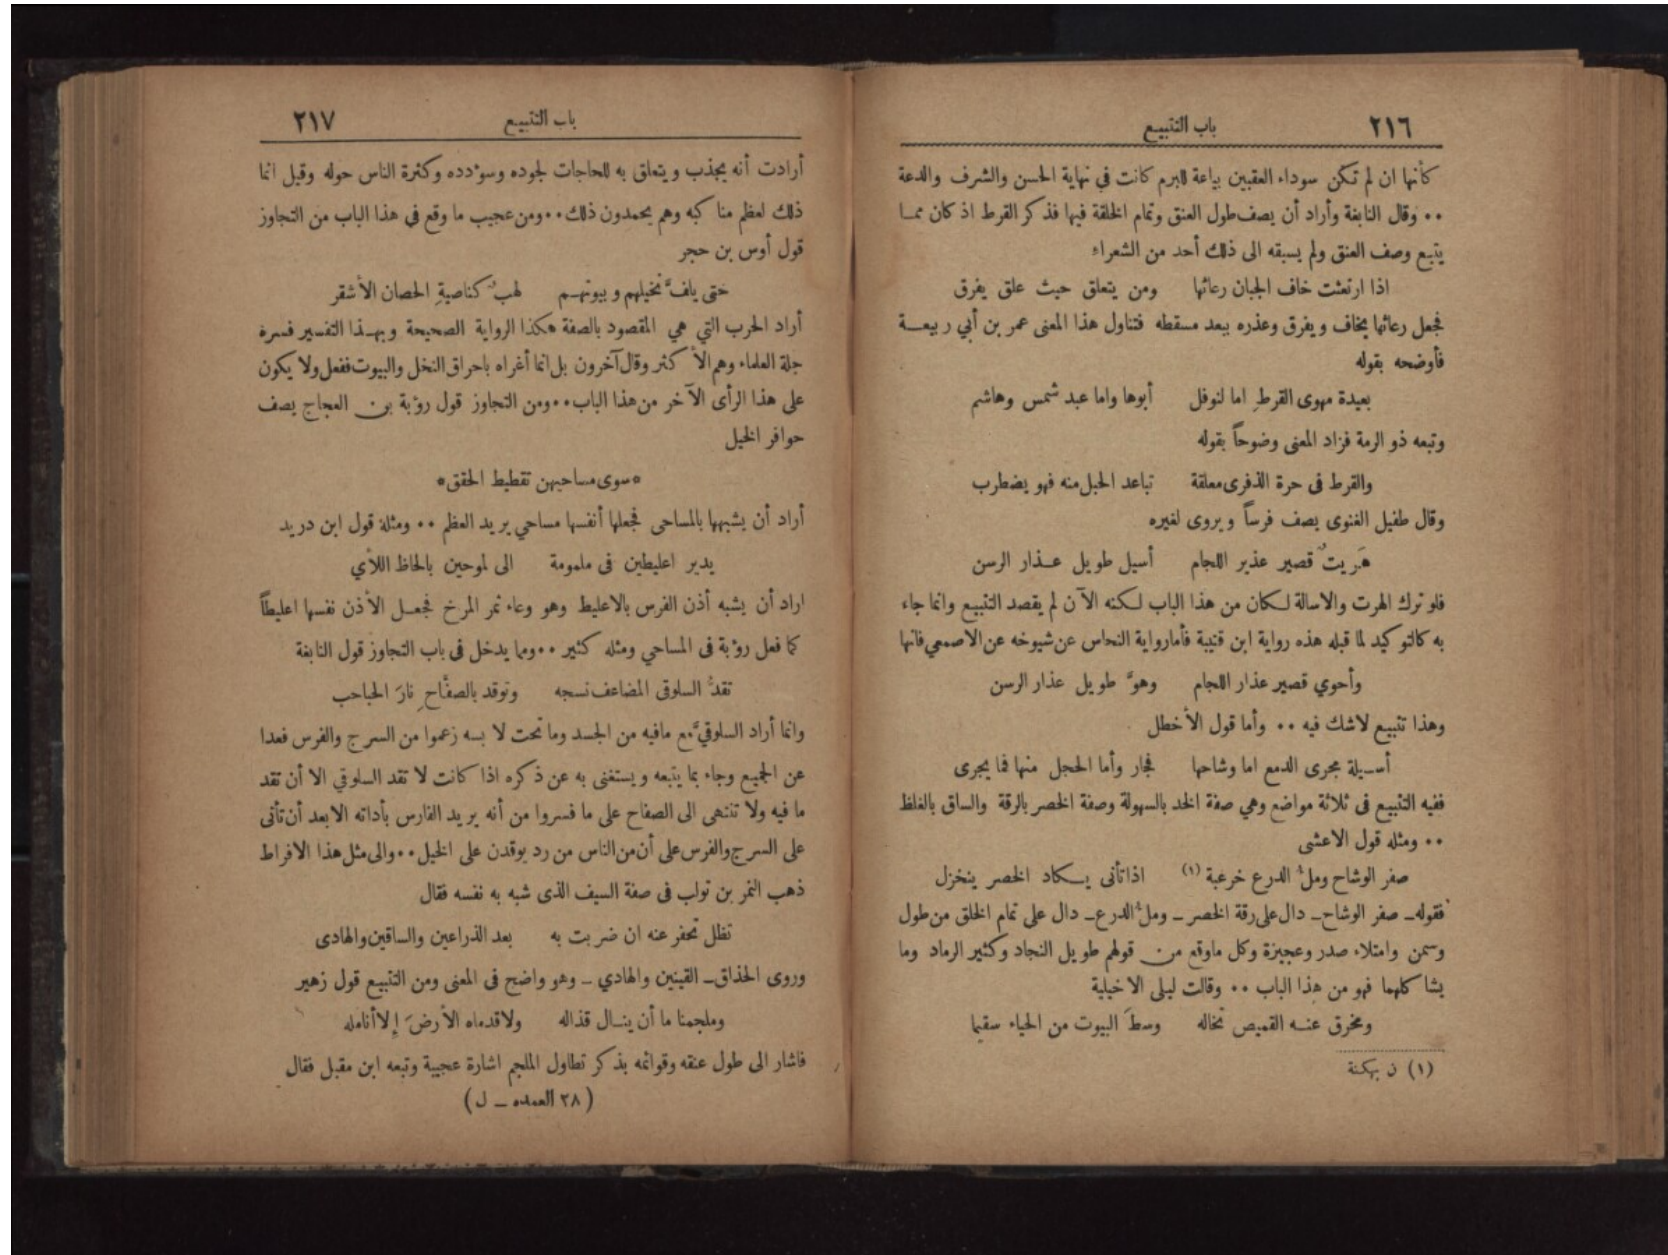 ٢١٦ باب التتبيع
كأنها ان لم تكن سوداء العقبين بياعة للبرم كانت في نهاية الحسن والشرف والدعة
٠٠ وقال النابغة وأراد أن يصف طول العنق وتمام الخلقة فيها فذكر القرط اذ كان ممـا
يتبع وصف العنق ولم يسبقه الى ذلك أحد من الشعراء
اذا ارتعثت خاف الجبان رعاثها ومن يتعلق حيث علق يفرق
فجعل رعاثها يخاف ويفرق وعذره ببعد مسقطه فتناول هذا المعنى عمر بن أبي ربيعـة
فأوضحه بقوله
بعيدة مهوى القرطِ اما لنوفل أبوها واما عبد شمس وهاشم
وتبعه ذو الرمة فزاد المعنى وضوحاً بقوله
والقرط فى حرة الذفرى معلقة تباعد الحبل منه فهو يضطرب
وقال طفيل الغنوى يصف فرساً ويروى لغيره
هَريتٌ قصير عذير اللجام أسيل طويل عـذار الرسن
فلو ترك الهرت والاسالة لـكان من هذا الباب لـكنه الآن لم يقصد التتبيع وانما جاء
به كالتوكيد لما قبله هذه رواية ابن قتيبة فأما رواية النحاس عن شيوخه عن الاصمعي فانها
وأحوي قصير عذار اللجام وهوَّ طويل عذار الرسن
وهذا تتبيع لاشك فيه ٠٠ وأما قول الأخطل
أسـيلة مجرى الدمع اما وشاحها فجار وأما الحجل منها فما يجرى
ففيه التتبيع فى ثلاثة مواضع وهي صفة الخد بالسهولة وصفة الخصر بالرقة والساق بالغلظ
٠٠ ومثله قول الاعشى
صفر الوشاح وملءُ الدرع خرعبة (١) اذا تأتى يـكاد الخصر ينخزل
فقوله ـ صفر الوشاح ـ دال على رقة الخصر ـ وملءُ الدرع ـ دال على تمام الخلق من طول
وسمن وامتلاء صدر وعجيزة وكل ما وقع من قولهم طويل النجاد وكثير الرماد وما
يشاكلهما فهو من هذا الباب ٠٠ وقالت ليلى الاخيلية
ومخرق عنـه القميص تخاله وسطَ البيوت من الحياء سقيما
(١) ن بهكنة
باب التتبيع ٢١٧
أرادت أنه يجذب ويتعلق به للحاجات لجوده وسودده وكثرة الناس حوله وقيل انما
ذلك لعظم مناكبه وهم يحمدون ذلك ٠٠ ومن عجيب ما وقع في هذا الباب من التجاوز
قول أوس بن حجر
حتى يلفَّ نخيلهم وبيوتهـم لهبٌ كناصيةِ الحصان الأشقر
أراد الحرب التي هي المقصود بالصفة هكذا الرواية الصحيحة وبهـذا التفسير فسره
جلة العلماء وهم الأكثر وقال آخرون بل انما أغراه باحراق النخل والبيوت ففعل ولا يكون
على هذا الرأى الآخر من هذا الباب ٠٠ ومن التجاوز قول رؤبة بن العجاج يصف
حوافر الخيل
* سوى مساحيهن تقطيط الحقق *
أراد أن يشبهها بالمساحى فجعلها أنفسها مساحي يريد العظم ٠٠ ومثله قول ابن دريد
يدير اعليطين فى ملمومة الى لموحين بالحاظ اللأي
اراد أن يشبه أذن الفرس بالاعليط وهو وعاء ثمر المرخ فجعـل الأذن نفسها اعليطاً
كما فعل رؤبة فى المساحي ومثله كثير ٠٠ ومما يدخل فى باب التجاوز قول النابغة
تقدُّ السلوقى المضاعف نسجه وتوقد بالصفَّاحِ نارَ الحباحب
وانما أراد السلوقيَّ مع مافيه من الجسد وما تحت لابسه زعموا من السرج والفرس فعدا
عن الجميع وجاء بما يتبعه ويستغنى به عن ذكره اذا كانت لا تقد السلوقي الا أن تقد
ما فيه ولا تنتهى الى الصفاح على ما فسروا من أنه يريد الفارس بأداته الابعد أن تأتى
على السرج والفرس على أن من الناس من رد يوقدن على الخيل ٠٠ والى مثل هذا الافراط
ذهب النمر بن تولب فى صفة السيف الذى شبه به نفسه فقال
تظل تحفر عنه ان ضربت به بعد الذراعين والساقين والهادى
وروى الحذاق ـ القينين والهادي ـ وهو واضح فى المعنى ومن التتبيع قول زهير
وملجمنا ما أن ينـال قذاله ولا قدماه الأرضَ إلا أنامله
فاشار الى طول عنقه وقوائمه بذكر تطاول الملجم اشارة عجيبة وتبعه ابن مقبل فقال
(٢٨ العمده ـ ل)